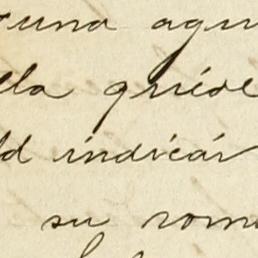 una agu
la quide
ld indicár
su rom